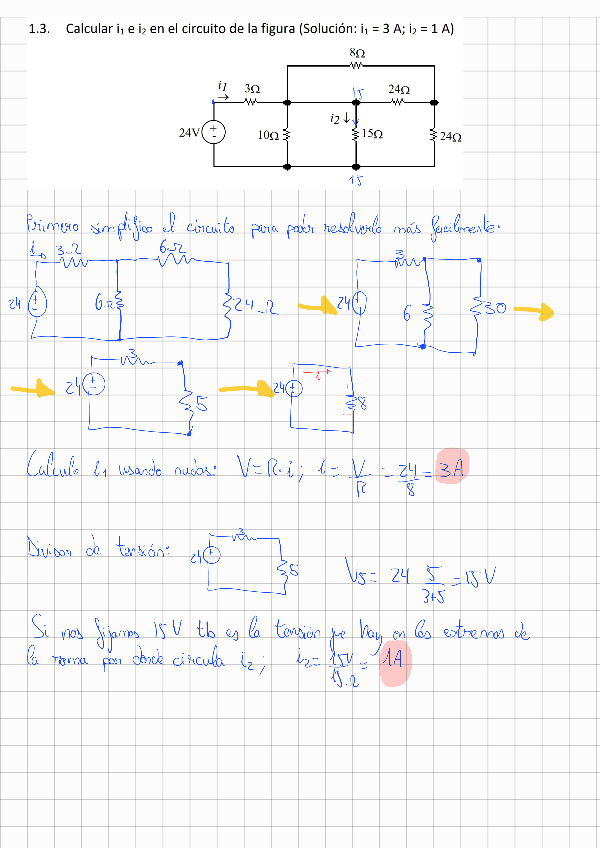 1.3. Calcular i₁ e i₂ en el circuito de la figura (Solución: i₁ = 3 A; i₂ = 1 A)
8Ω
i1 3Ω 15 24Ω
24V + - 10Ω i2 15Ω 24Ω
15
Primero simplifico el circuito para poder resolverlo más facilmente:
i₁ 3Ω 6Ω 3
24 + - 6Ω 24Ω 24 + - 6 30
3
24 + - 5 24 + - i 8
Calculo i₁ usando nudos: V=R·i; i= V/R = 24/8 = 3A
Divisor de tensión: 24 + - 3 5 V5= 24 5/3+5 = 15V
Si nos fijamos 15V tb es la tensión que hay en los extremos de
la rama por donde circula i₂; i₂= 15V/15Ω = 1A